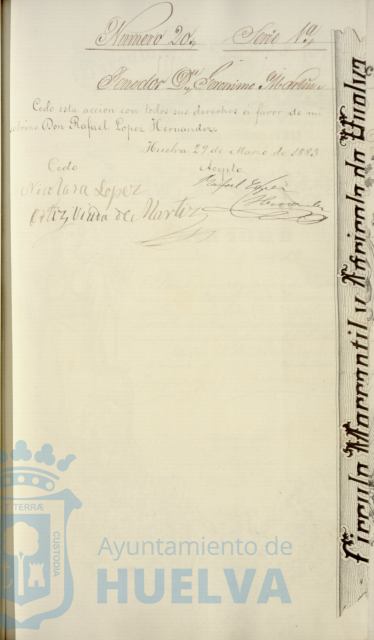 Numero 20, Serie 1ª,
Tenedor Dn. Geronimo Martin
Cedo esta accion con todos sus derechos á favor de mi
sobrino Don Rafael Lopez Hernandez.
Huelva 29 de Marzo de 1883
Cedo
Acepto
Nicolasa Lopez
Viuda de Martin
Rafael Lopez
Hernandez
Circulo Mercantil y Agricola de Huelva
TERRÆ
CUSTODIA
Ayuntamiento de
HUELVA